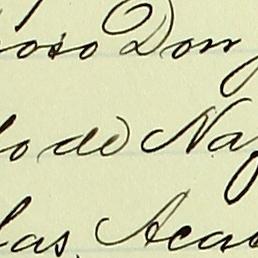 oso Don
lo de Na
las Aca